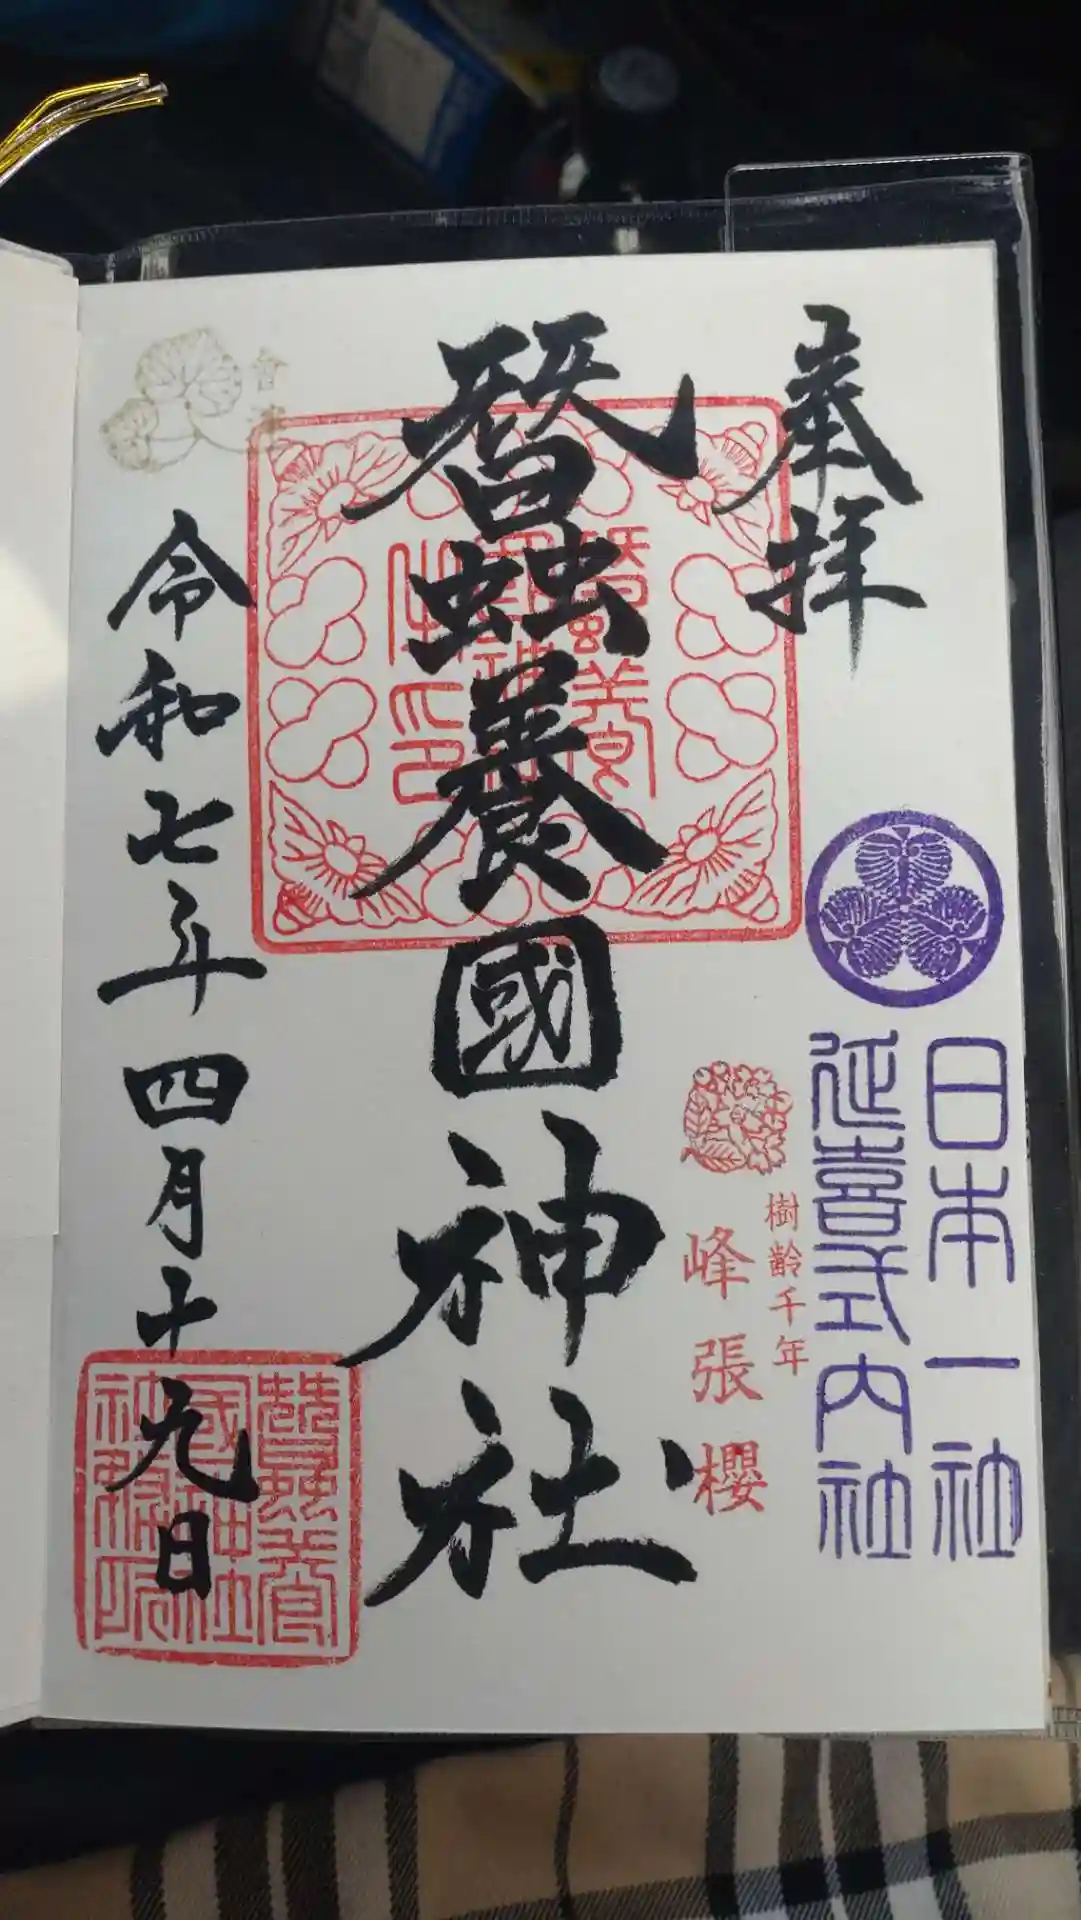 奉拝
日本一社
延喜式内社
樹齢千年
峰張櫻
蠶養國神社
蠶養
之印
會津
令和七年四月十九日
蠶養
國神社
社務所